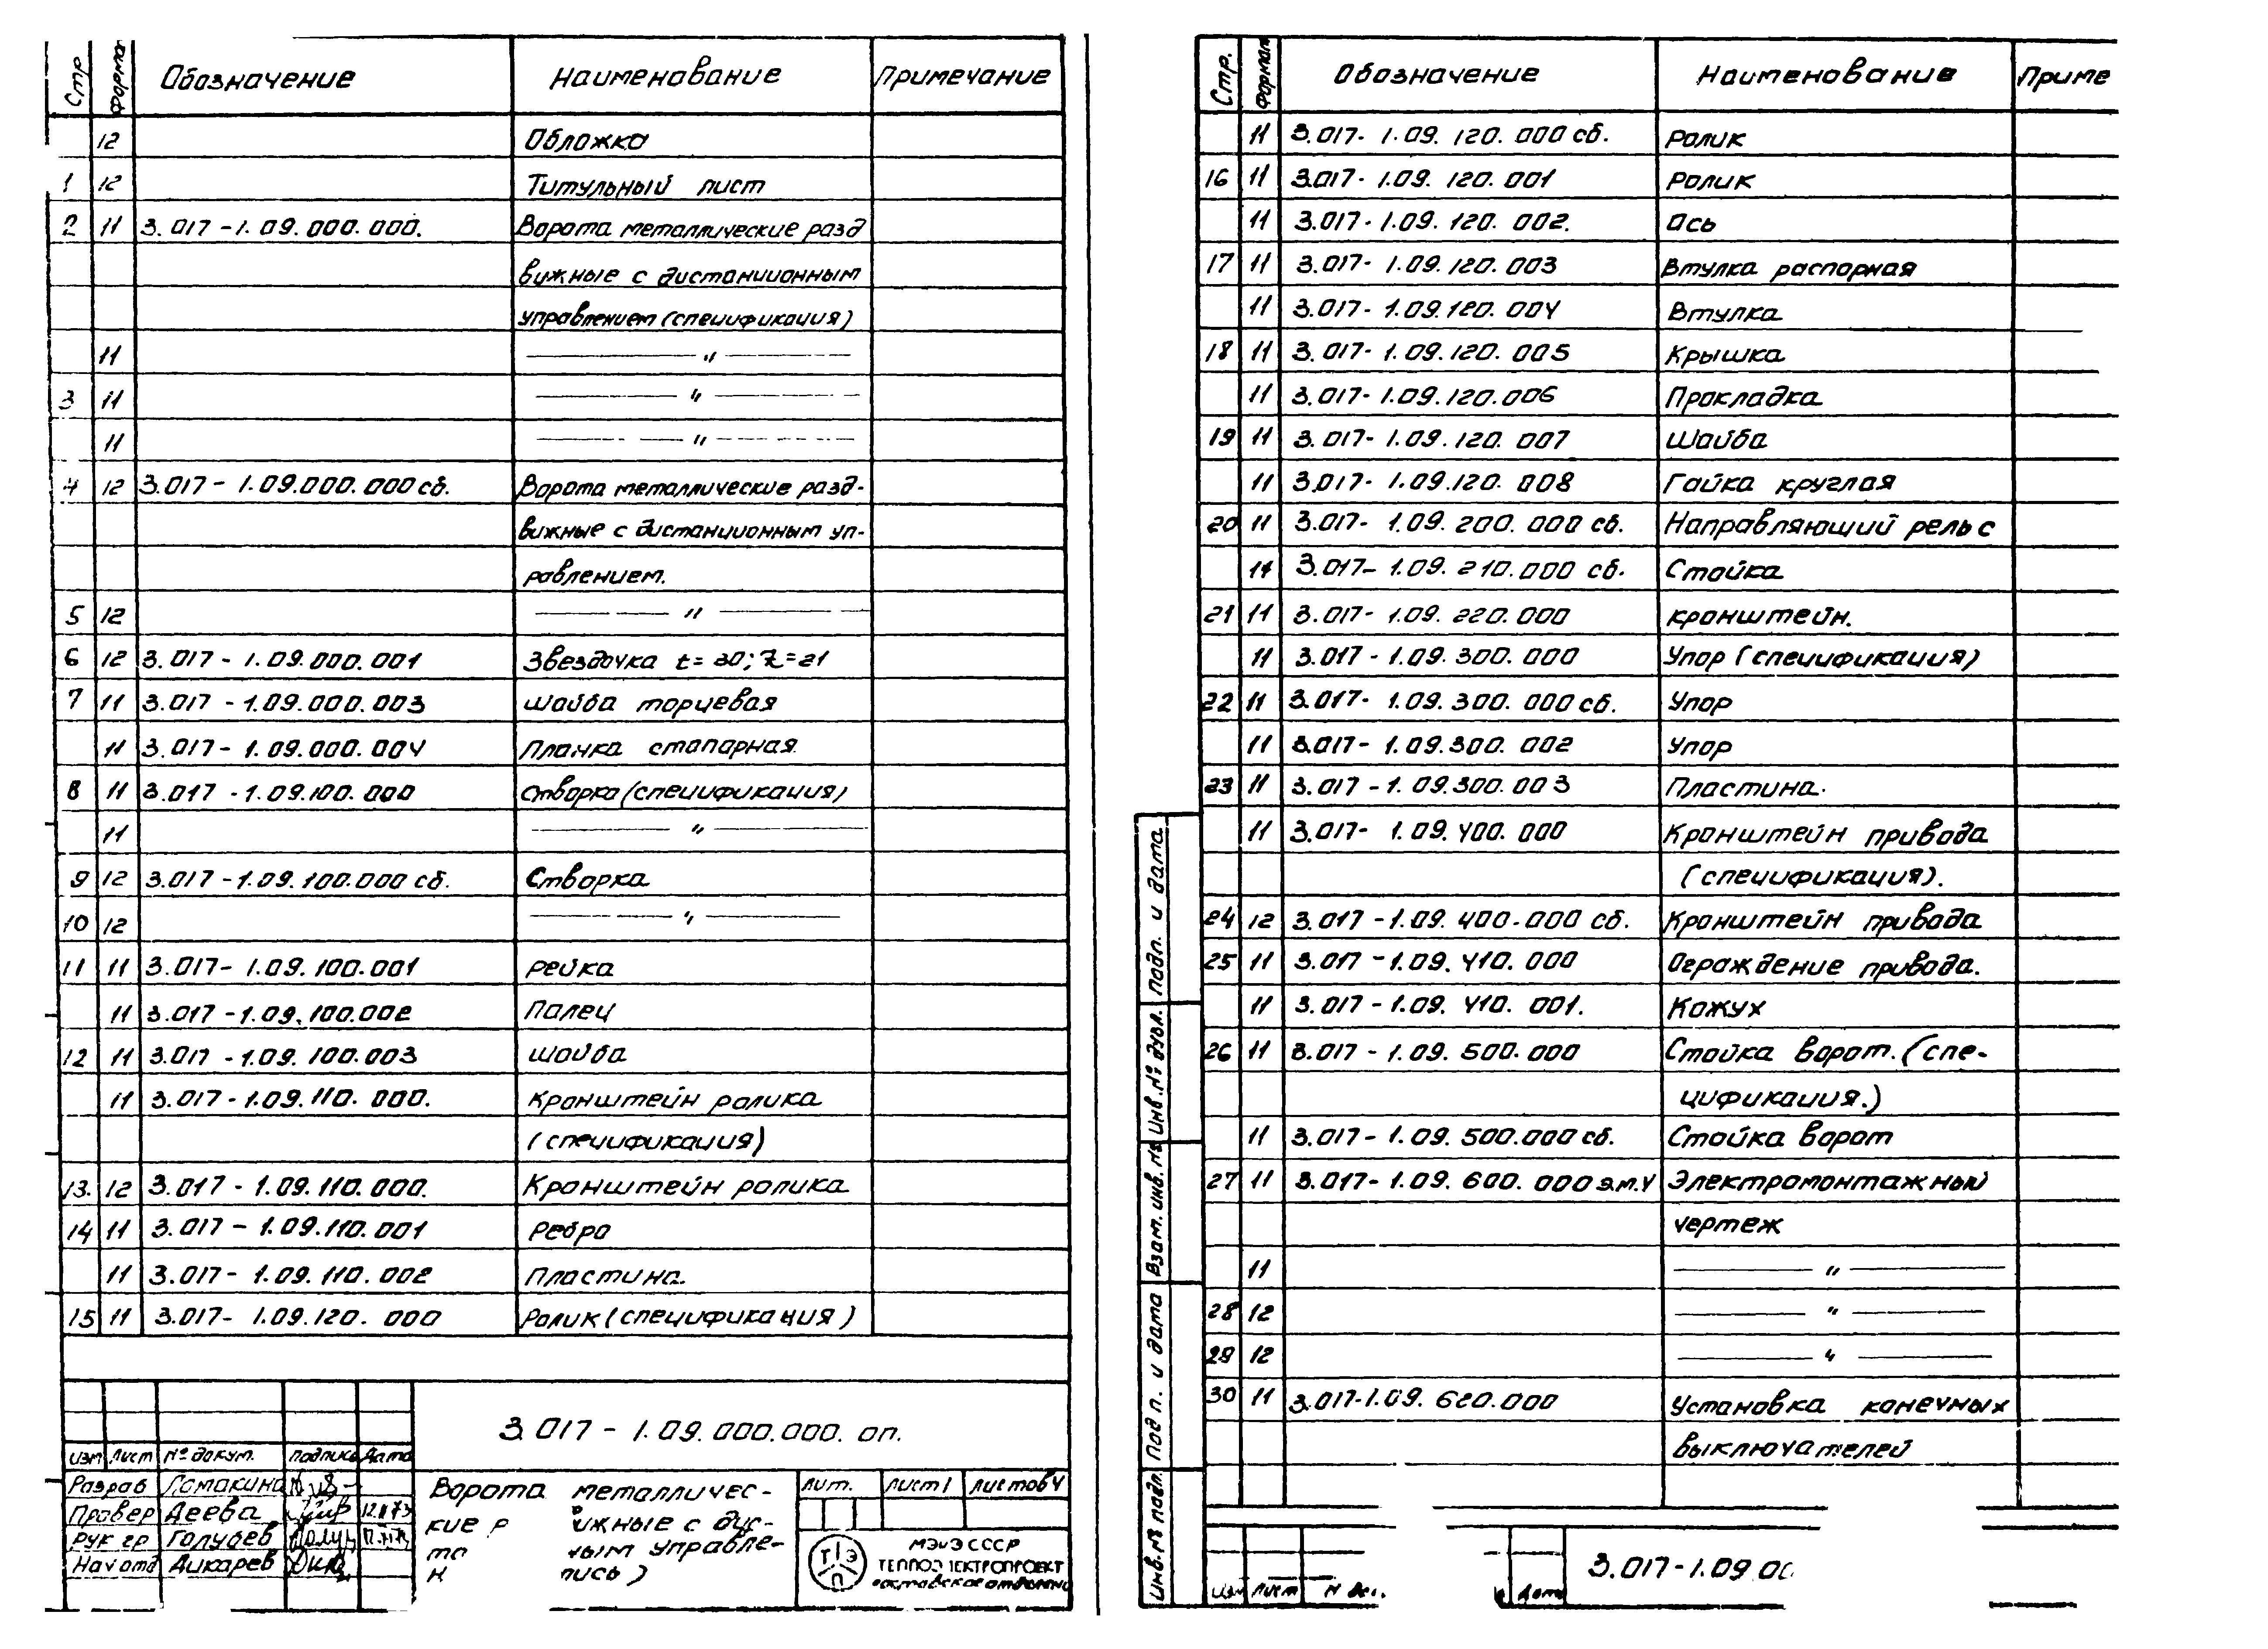 Стр Формат Обозначение Наименование Примечание
12 Обложка
1 12 Титульный лист
2 11 3.017-1.09.000.000. Ворота металлические разд
вижные с дистанционным
управлением (спецификация)
11 — " —
3 11 — " —
11 — " —
4 12 3.017-1.09.000.000 сб. Ворота металлические разд-
вижные с дистанционным уп-
равлением.
5 12 — " —
6 12 3.017-1.09.000.001 Звездочка t=30; Z=21
7 11 3.017-1.09.000.003 Шайба торцевая
11 3.017-1.09.000.004 Планка стопорная
8 11 3.017-1.09.100.000 Створка (спецификация)
11 — " —
9 12 3.017-1.09.100.000 сб. Створка
10 12 — " —
11 11 3.017-1.09.100.001 Рейка
11 3.017-1.09.100.002 Палец
12 11 3.017-1.09.100.003 Шайба
11 3.017-1.09.110.000. Кронштейн ролика
(спецификация)
13. 12 3.017-1.09.110.000. Кронштейн ролика
14 11 3.017-1.09.110.001 Ребро
11 3.017-1.09.110.002 Пластина.
15 11 3.017-1.09.120.000 Ролик (спецификация)
3.017-1.09.000.000. оп.
Изм Лист № докум. Подпись Дата
Разраб Ломакина
Провер Деева
Рук гр Голубев
Нач отд Дикарев
Ворота металличес-
кие р ижные с дис-
та ным управле-
н пись)
Лит. Лист 1 Листов 4
МЭиЭ СССР
ТЕПЛОЭЛЕКТРОПРОЕКТ
Ростовское отделение
ТЭП
Стр. Формат Обозначение Наименование Приме
11 3.017-1.09.120.000 сб. Ролик
16 11 3.017-1.09.120.001 Ролик
11 3.017-1.09.120.002. Ось
17 11 3.017-1.09.120.003 Втулка распорная
11 3.017-1.09.120.004 Втулка
18 11 3.017-1.09.120.005 Крышка
11 3.017-1.09.120.006 Прокладка
19 11 3.017-1.09.120.007 Шайба
11 3.017-1.09.120.008 Гайка круглая
20 11 3.017-1.09.200.000 сб. Направляющий рельс
11 3.017-1.09.210.000 сб. Стойка
21 11 3.017-1.09.220.000 Кронштейн.
11 3.017-1.09.300.000 Упор (спецификация)
22 11 3.017-1.09.300.000 сб. Упор
11 3.017-1.09.300.002 Упор
23 11 3.017-1.09.300.003 Пластина.
11 3.017-1.09.400.000 Кронштейн привода
(спецификация).
24 12 3.017-1.09.400.000 сб. Кронштейн привода
25 11 3.017-1.09.410.000 Ограждение привода.
11 3.017-1.09.410.001. Кожух
26 11 3.017-1.09.500.000 Стойка ворот. (спе-
цификация.)
11 3.017-1.09.500.000 сб. Стойка ворот
27 11 3.017-1.09.600.000 э.м.ч Электромонтажный
чертеж
11 — " —
28 12 — " —
29 12 — " —
30 11 3.017-1.09.620.000 Установка конечных
выключателей
Подп. и дата
Инв.№ дубл.
Взам. инв. №
Подп. и дата
Инв.№ подл.
Изм Лист Дата
3.017-1.09.00